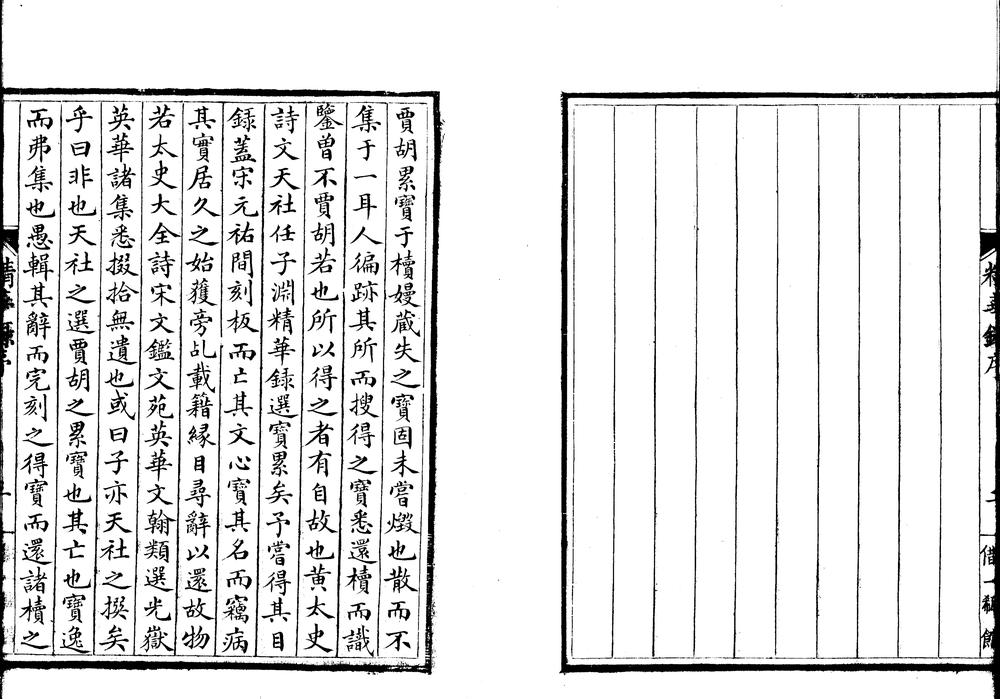 精華錄序
借一瓻館
賈胡累寶于櫝嫚藏失之寶固未嘗燬也散而不
集于一耳人徧跡其所而搜得之寶悉還櫝而識
鑒曽不賈胡若也所以得之者有自故也黄太史
詩文天社任子淵精華録選寶累矣予嘗得其目
録蓋宋元祐間刻板而亡其文心寶其名而竊病
其實居久之始獲旁乩載籍緣目尋辭以還故物
若太史大全詩宋文鑑文苑英華文翰類選光嶽
英華諸集悉掇拾無遺也或曰子亦天社之撰矣
乎曰非也天社之選賈胡之累寶也其亡也寶逸
而弗集也愚輯其辭而完刻之得寶而還諸櫝之